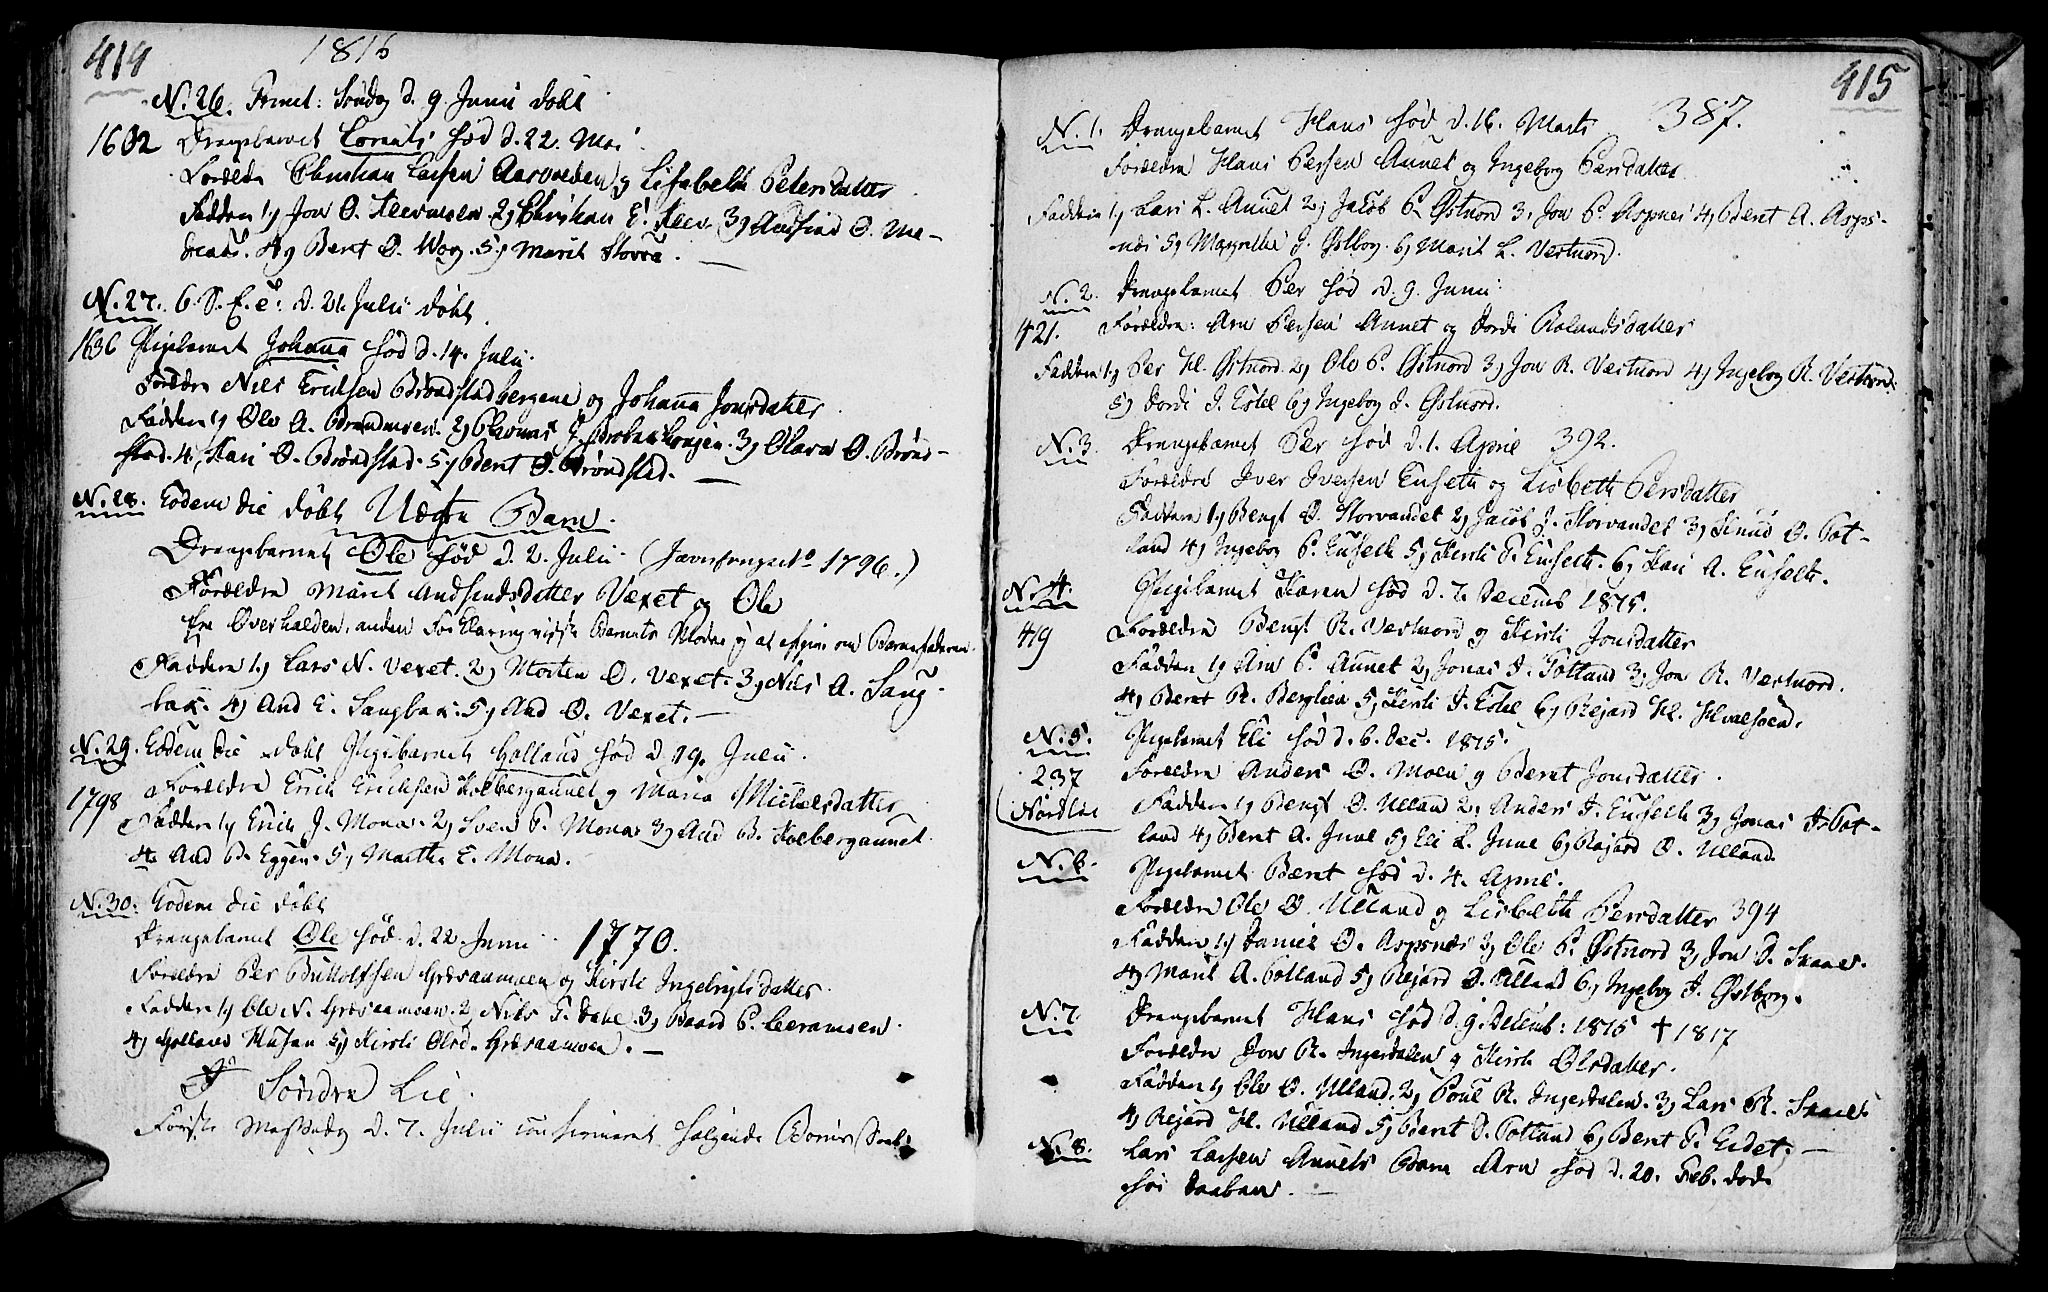 414 1816
N. 26. Trinit: Søndag d. 9 Junii døbt
1602 Drengebarnet Cornelis født d. 22. Mai
Forældre Christian Larsen Aarveden og Lisabeth Petersdatter
Faddere 1, Jon O. 2, Christian E. 3, O.
4, Bent O. Wog. 5, Marit
N. 27. 6. S. E. d. 21. Julii døbt
1636 Pigebarnet Johanna født d. 14. Julii.
Forældre Nils Erichsen Brøndstadbergene og Johanna Jonsdatter
Faddere 1, Ole A. 2, Thomas 3, Olava O. Brønd-
stad. 4, Kari O. Brøndstad. 5, Bent O. Brøndstad.
N. 28. Eodem die døbt Uægte Barn.
Drengebarnet Ole født d. 2. Julii 1796.)
Forældre Marit Andfindsdatter Vexet og Ole
fra Overhalden, anden Forklaring vidste Barnets Moder ej at afgive om Barnefaderen.
Faddere 1, Lars N. Vexet. 2, Morten O. Vexet. 3, Nils A. Sang-
bak. 4, And E. Sangbak. 5, And O. Vexet.
N. 29. Eodem die døbt Pigebarnet Golland født d. 19. Julii.
1798 Forældre Erich Erichsen Kolbergaunet og Maria Michelsdatter
Faddere 1, Erich J. Mona. 2, Sven T. Mona 3, And B. Kolbergaunet.
4. And B. Eggen. 5, Martha E. Mona.
N. 30. Eodem die døbt
Drengebarnet Ole født d. 22. Junii 1770.
Forældre Per Buttolfsen Græsaamoen og Kirsti Ingebrigtsdatter
Faddere 1, Ole N. Græsaamoen. 2, Nils T. Dahl. 3, Baard P.
4, Golland 5, Kirsti Olsd. Græsaamoen.
I Søndre Lie.
Første Messedag d. 7. Julii confirmeret følgende Børns Daab
415
N. 1. Drengebarnet Hans født d. 16. Marts 387.
Forældre Hans Persen Aunet og Ingeborg Persdatter
Faddere 1, Lars L. Aunet 2, Jacob P. Østnord 3, Jon P. Aspnes 4, Bent A. Asps-
nes 5, Magrethe J. Østborg. 6, Marit L. Vestnord.
N. 2. Drengebarnet Per født d. 9. Junii
421. Forældre: Arn Persen Aunet og Dordi Rolandsdatter
Faddere 1, Per H. Østnord. 2, Ole P. Østnord 3, Jon R. Vestnord 4, Ingeborg R. Vestnord.
5, Dordi J. Estel 6, Ingeborg J. Østnord.
N. 3. Drengebarnet Per født d. 1. April 392.
Forældre Iver Iversen Enseth og Lisbeth Persdatter
Faddere 1, Bengt O. Storvandet 2, Jacob J. Storvandet 3, Knud O. Tot-
land 4, Ingeborg P. Enseth 5, Kirsti T. Enseth. 6, Kari A. Enseth.
N. 4. Pigebarnet Karen født d. 7. Decemb 1815.
419 Forældre Bengt R. Vestnord og Kirsti Jonsdatter
Faddere 1, Arn P. Aunet 2, Jonas J. Totland 3, Jon R. Vestnord.
4, Beret R. Berglien 5, Kirsti J. Estel 6, Rejard H.
N. 5. Pigebarnet Eli født d. 6. Dec. 1815.
237 Forældre Anders O. Moen og Beret Jonsdatter.
(Nordlie Faddere 1, Bengt O. Ulland 2, Anders J. Enseth 3, Jonas J. Tot-
land 4, Beret A. June 5, Eli L. June 6, Rejard O. Ulland
N. 6. Pigebarnet Beret født d. 4. April.
Forældre Ole O. Ulland og Lisbeth Persdatter 394
Faddere 1, Daniel O. Aspnes 2, Ole P. Østnord 3, Jon D. Skaale.
4, Marit A. Totland 5, Rejard O. Ulland 6, Ingeborg J. Østborg.
N. 7 Drengebarnet Hans født d. 9. Decemb: 1815 † 1817
Forældre Jon R. Ingerdalen og Kirsti Olsdatter.
Faddere 1, Ole O. Ulland. 2, Poul R. Ingerdalen. 3, Lars R. Skaale
4, Rejard H. Ulland 5, Beret D. Totland 6, Beret T. Eidet.
N. 8. Lars Larsen Aunets Barn Arn født d. 20. Feb. døde
før Daaben.